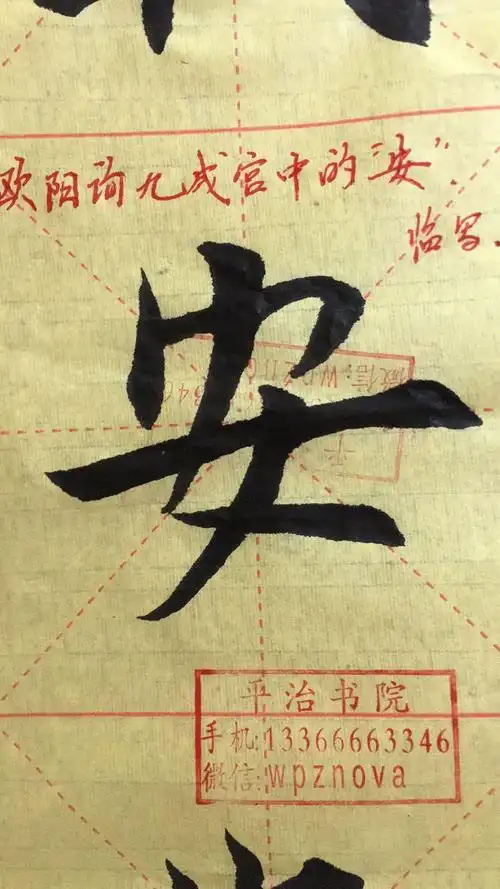 欧阳询九成宫中的"安".
临写.
安
平治书院
手机:13366663346
微信:wpznova